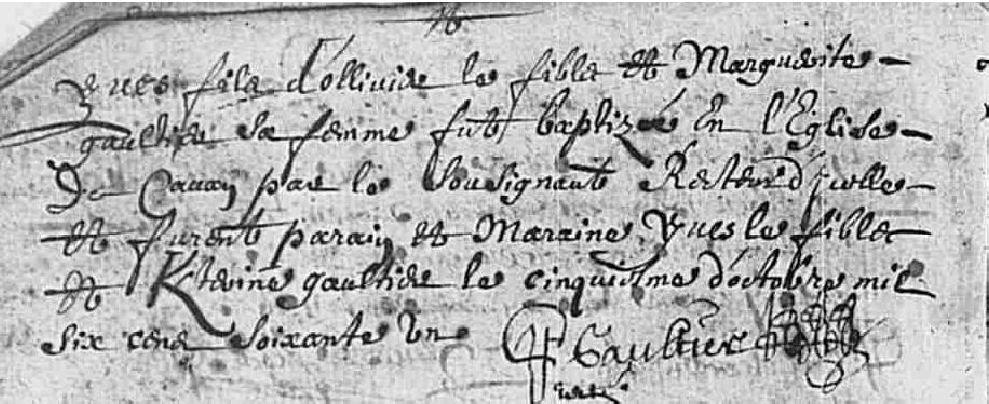 yves fils d'ollivier le fibler et Marguerite
gaultier sa femme fut baptizé En l'Eglise
De Cavan par le Sousignant Recteur d'icelle
et furent parain et Maraine yves le fibler
et Kterine gaultier le cinquiesme d'octobre mil
six cens soixante un Gaultier